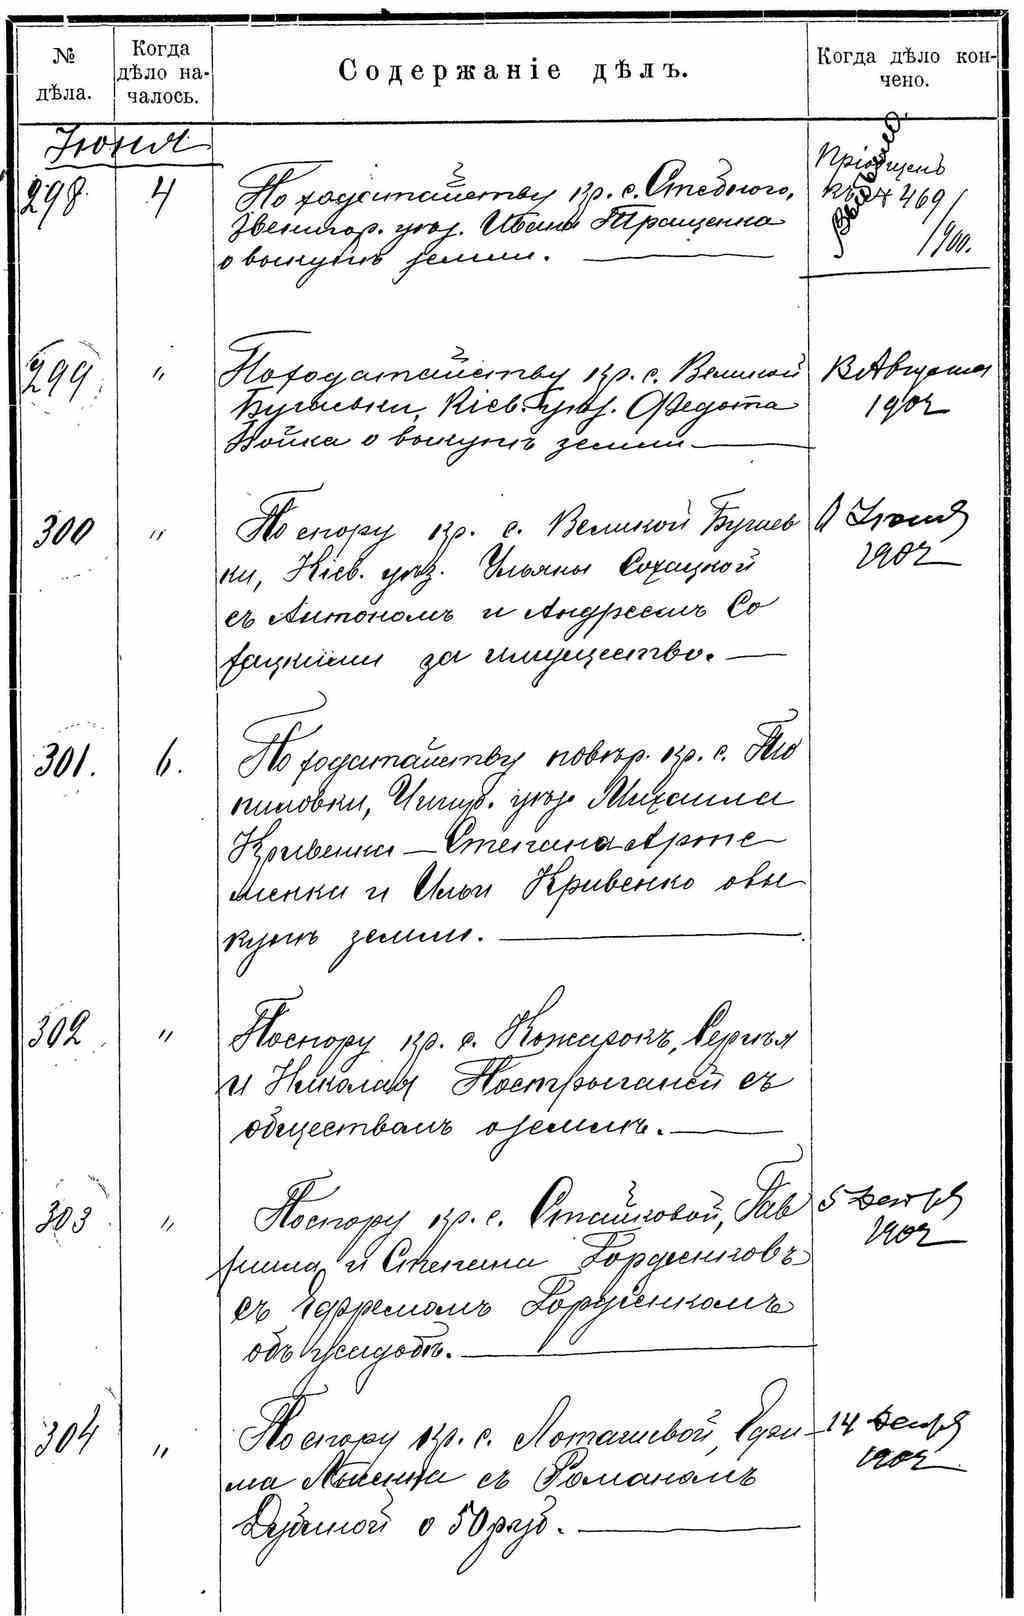 № дѣла.
Когда дѣло началось.
Содержаніе дѣлъ.
Когда дѣло кончено.
Іюня
298. 4 По ходатайству кр. с. Стебного,
Звенигор. уѣз. Ивана Тращенка
о выкупѣ земли.
Пріобщенъ
къ № 469/
/900.
299 " По ходатайству кр. с. Великой
Бугаевки, Кіев. уѣз. Федота
Бойка о выкупѣ земли
Августа
1902
300 " По спору кр. с. Великой Бугаев
ки, Кіев. уѣз. Ульяны Сохацкой
съ Антономъ и Андреемъ Со
хацкими за имущество.
Іюня
1902
301. 6. По ходатайству повѣр. кр. с. То
пиловки, Чигир. уѣз. Михаила
Кривенка — Степана Арте
менка и Ильи Кривенко о вы
купѣ земли.
302 " По спору кр. с. Кожарокъ, Сергѣя
и Николая Пострыганей съ
обществомъ о землѣ.
303 " По спору кр. с. Стайковой, Гав
риила и Степана Гордіенковъ
съ Ефремомъ Гордіенкомъ
объ усадьбѣ.
5
1902
304 " По спору кр. с. Лоташевой, Ефи
ма съ Романомъ
Дубиной о 50 руб.
14
1902